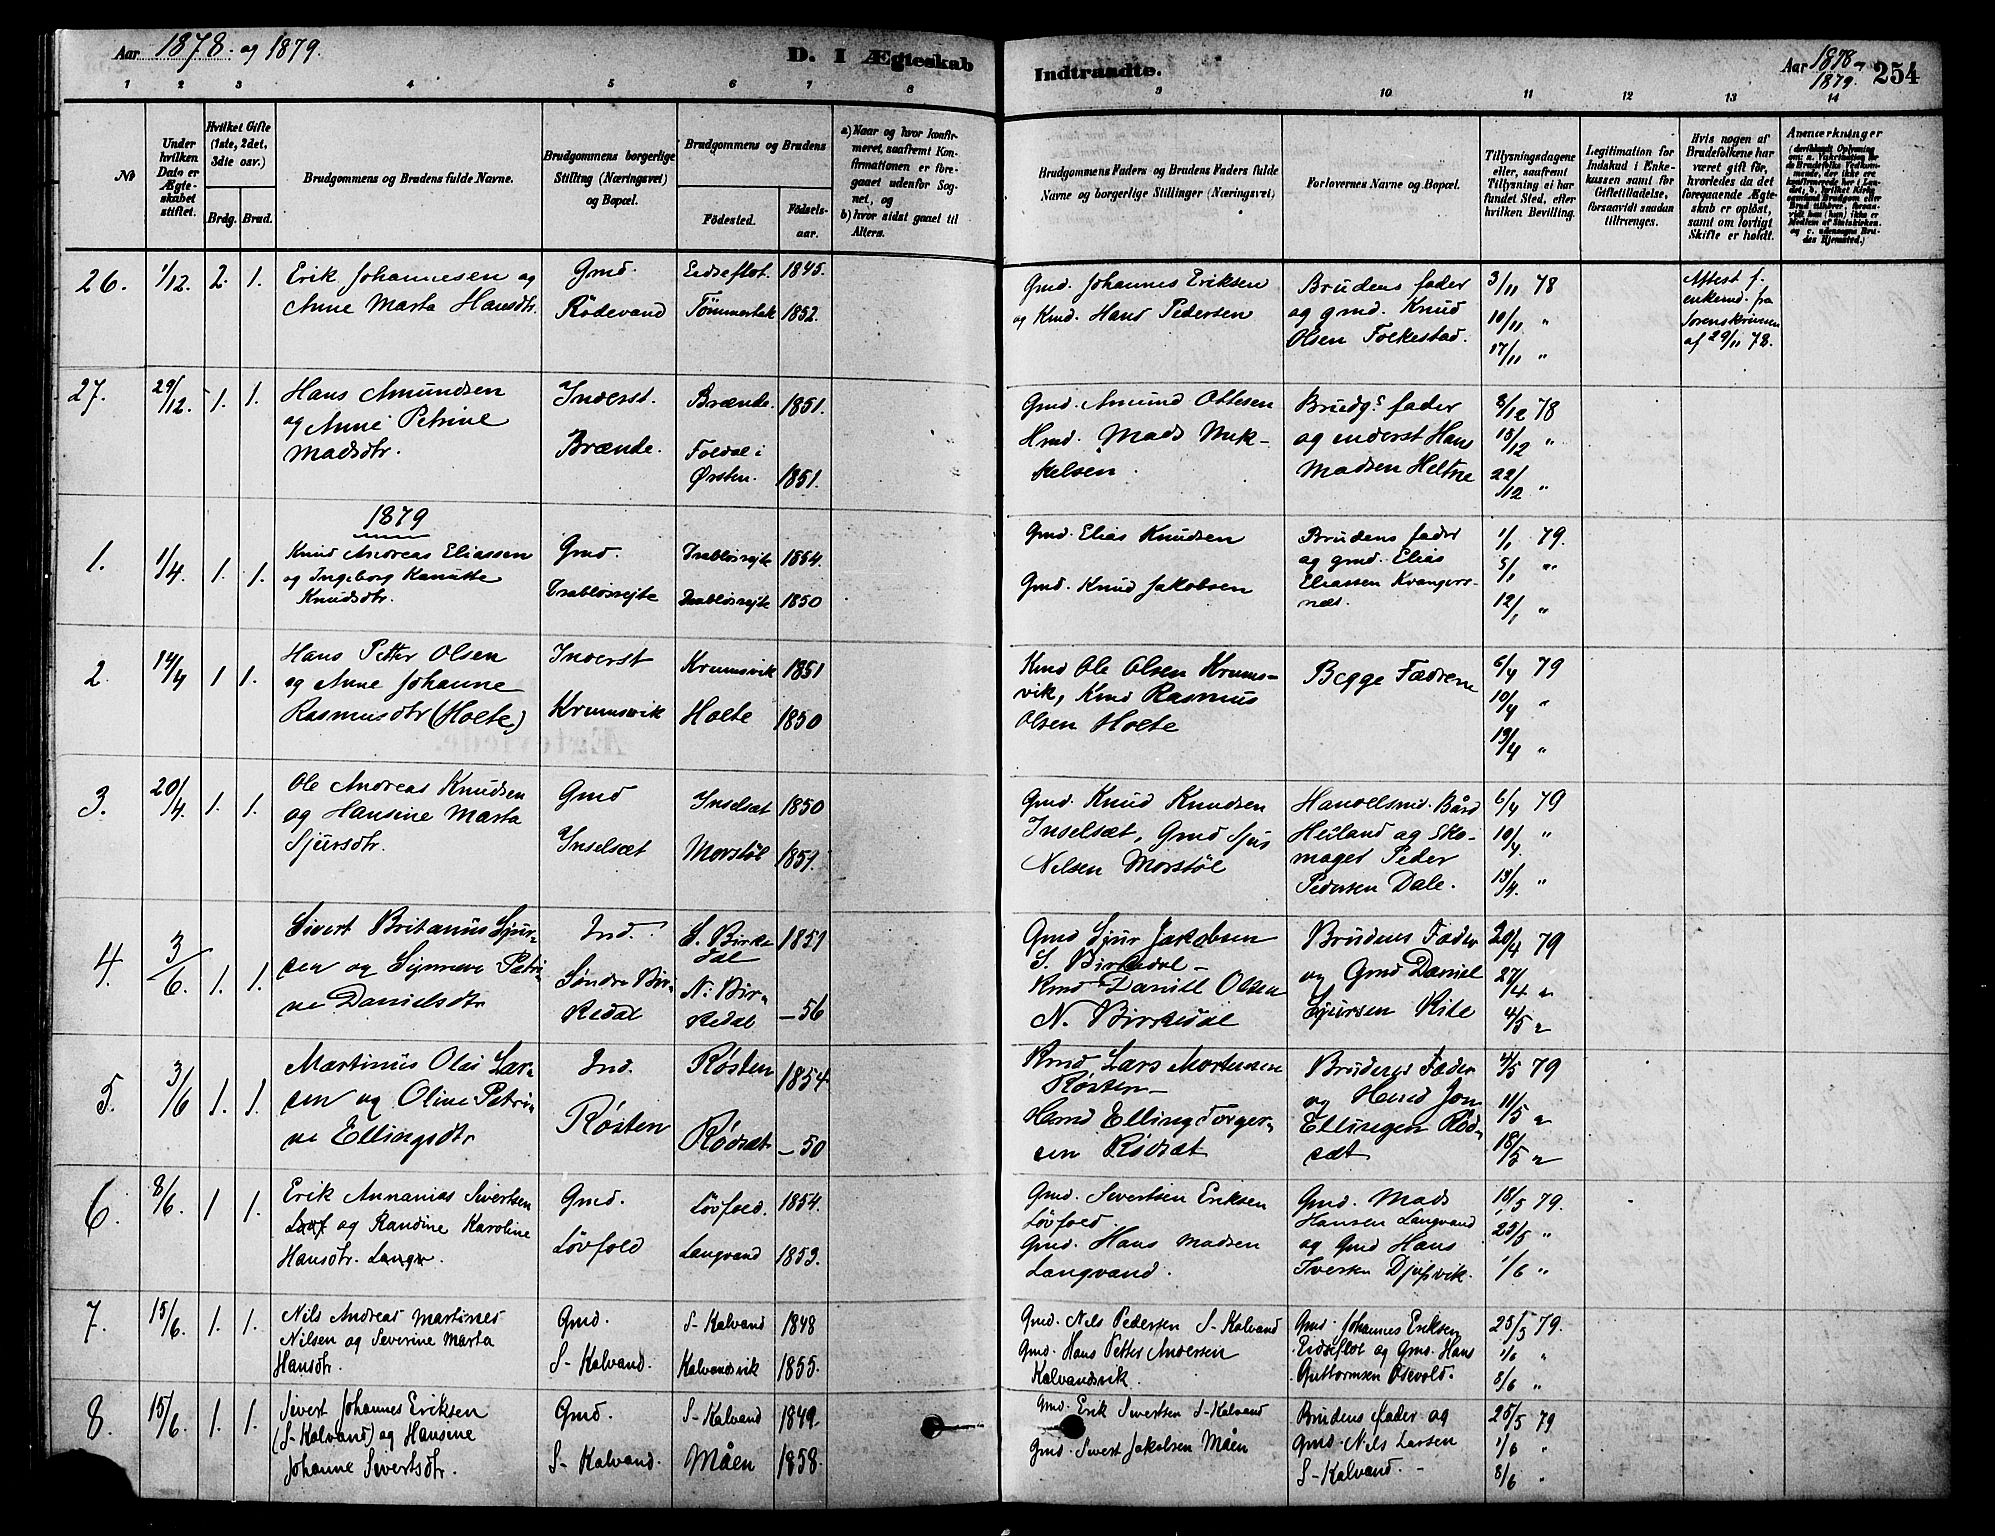 Aar 1878. og 1879.
D. I Ægteskab
Indtraadte.
Aar 1878 og 1879. 254
1 2 3 4 5 6 7 8 9 10 11 12 13 14
No
Under hvilken Dato er Ægteskabet stiftet.
Hvilket Gifte (1ste, 2det, 3die osv.)
Brdg. Brud.
Brudgommens og Brudens fulde Navne.
Brudgommens borgerlige Stilling (Næringsvei) og Bopæl.
Brudgommens og Brudens
Fødested. Fødselsaar.
a) Naar og hvor konfirmeret, saafremt Konfirmationen er foregaaet udenfor Sognet, og
b) hvor sidst gaaet til Alters.
Brudgommens Faders og Brudens Faders fulde Navne og borgerlige Stillinger (Næringsvei)
Forlovernes Navne og Bopæl.
Tillysningsdagene eller, saafremt Tillysning ei har fundet Sted, efter hvilken Bevilling.
Legitimation for Indskud i Enkekassen samt for Giftetilladelse, forsaavidt saadan tiltrænges.
Hvis nogen af Brudefolkene har været gift før, hvorledes da det foregaaende Ægteskab er opløst, samt om lovligt Skifte er holdt.
Anmerkninger
26. 1/12. 2. 1. Erik Johannesen og Gmd. Eidseflot. 1845. Gmd. Johannes Eriksen Brudens fader 3/11 78 Attest f.
Anne Marta Hansdtr. Rødevand Tømmertak 1852. og Kmd. Hans Pedersen og gmd. Knud 10/11 " enkemd. fra
Olsen Folkestad. 17/11 " Sorenskriveren
af 29/11 78.
27. 29/12. 1. 1. Hans Amundsen Inderst. Brænde. 1851. Gmd. Amund Ottesen Brudgs fader 8/12 78
og Anne Petrine Brænde. Foldal i Hmd. Mads Mik- og inderst Hans 15/12 "
Madsdtr. Ørsten. 1851. kelsen. Madsen Heltne 22/12 "
1879
1. 1/4 1. 1. Knud Andreas Eliassen Gmd. 1854. Gmd. Elias Knudsen Brudens fader 1/1 79.
og Ingeborg Kanutte 1850 Gmd. Knud Jakobsen og gmd. Elias 5/1 "
Knudsdtr. Eliassen Kvangers- 12/1 "
næs.
2. 14/4 1 1. Hans Petter Olsen Inderst Krumsvik 1851 Kmd Ole Olsen Krums- Begge Fædrene 6/4 79
og Anne Johanne Krumsvik Holte 1850 vik, Kmd Rasmus 10/4 "
Rasmusdtr (Holte) Olsen Holte 13/4 "
3. 20/4 1. 1. Ole Andreas Knudsen Gmd Inselsæt 1850 Gmd. Knud Knudsen Handelsmd. Bård 6/4 79
og Hansine Marta Inselsæt Morstøl 1859. Inselsæt, Gmd Sjur Heiland og Sko- 10/4. "
Sjursdtr. Nilsen Morstøl mager Peder 13/4. "
Pedersen Dale.
4. 3/6. 1. 1. Sivert Britanus Sjur- Ind. S. Birke- 1851 Gmd Sjur Jakobsen Brudens Fader 20/4 79
sen og Synneve Petri- Søndre Bir- dal S. Birkedal - og Gmd Daniel 27/4 "
ne Danielsdtr kedal N. Bir- Kmd Daniel Olsen Sjursen Kile 4/5 "
kedal - 56 N. Birkedal
5. 3/6 1. 1. Martinus Olai Lar- Ind. Røsten 1854 Kmd Lars Mortensen Brudens Fader 4/5 79
sen og Oline Petri- Røsten Rødsæt - 50 Røsten - og Hmd Jon 11/5 "
ne Ellingsdtr Hmd Elling Torger- Ellingsen Rød- 18/5 "
sen Rødsæt sæt
6. 8/6. 1 1. Erik Annanias Sivertsen Gmd. Løvfold. 1854. Gmd. Sivertsen Eriksen Gmd. Mads 18/5 79.
og Randine Karoline Løvfold Langvand 1853. Løvfold. Hansen Langvand 25/5 "
Hansdtr. Langv. Gmd. Hans Madsen og Gmd Hans 1/6 "
Langvand. Iversen Djupvik.
7. 15/6. 1. 1. Nils Andreas Martines Gmd. S-Kalvand 1848 Gmd. Nils Pedersen S-Kalvand Gmd. Johannes Eriksen 25/5 79.
Nilsen og Severine Marta S-Kalvand. Kalvandsvik 1855. Gmd. Hans Petter Andersen Eidseflot og Gmd. Hans 1/6 "
Hansdtr. Kalvandsvik. Guttormsen Osevold. 8/6 "
8. 15/6. 1. 1. Sivert Johannes Eriksen Gmd. S-Kalvand 1849. Gmd. Erik Sivertsen S-Kalvand Brudens Fader og 25/5 79
(S-Kalvand) og Hansine S-Kalvand. Måen 1858. Gmd. Sivert Jakobsen Måen Gmd. Nils Larsen 1/6 "
Johanne Sivertsdtr. S-Kalvand. - 8/6 "